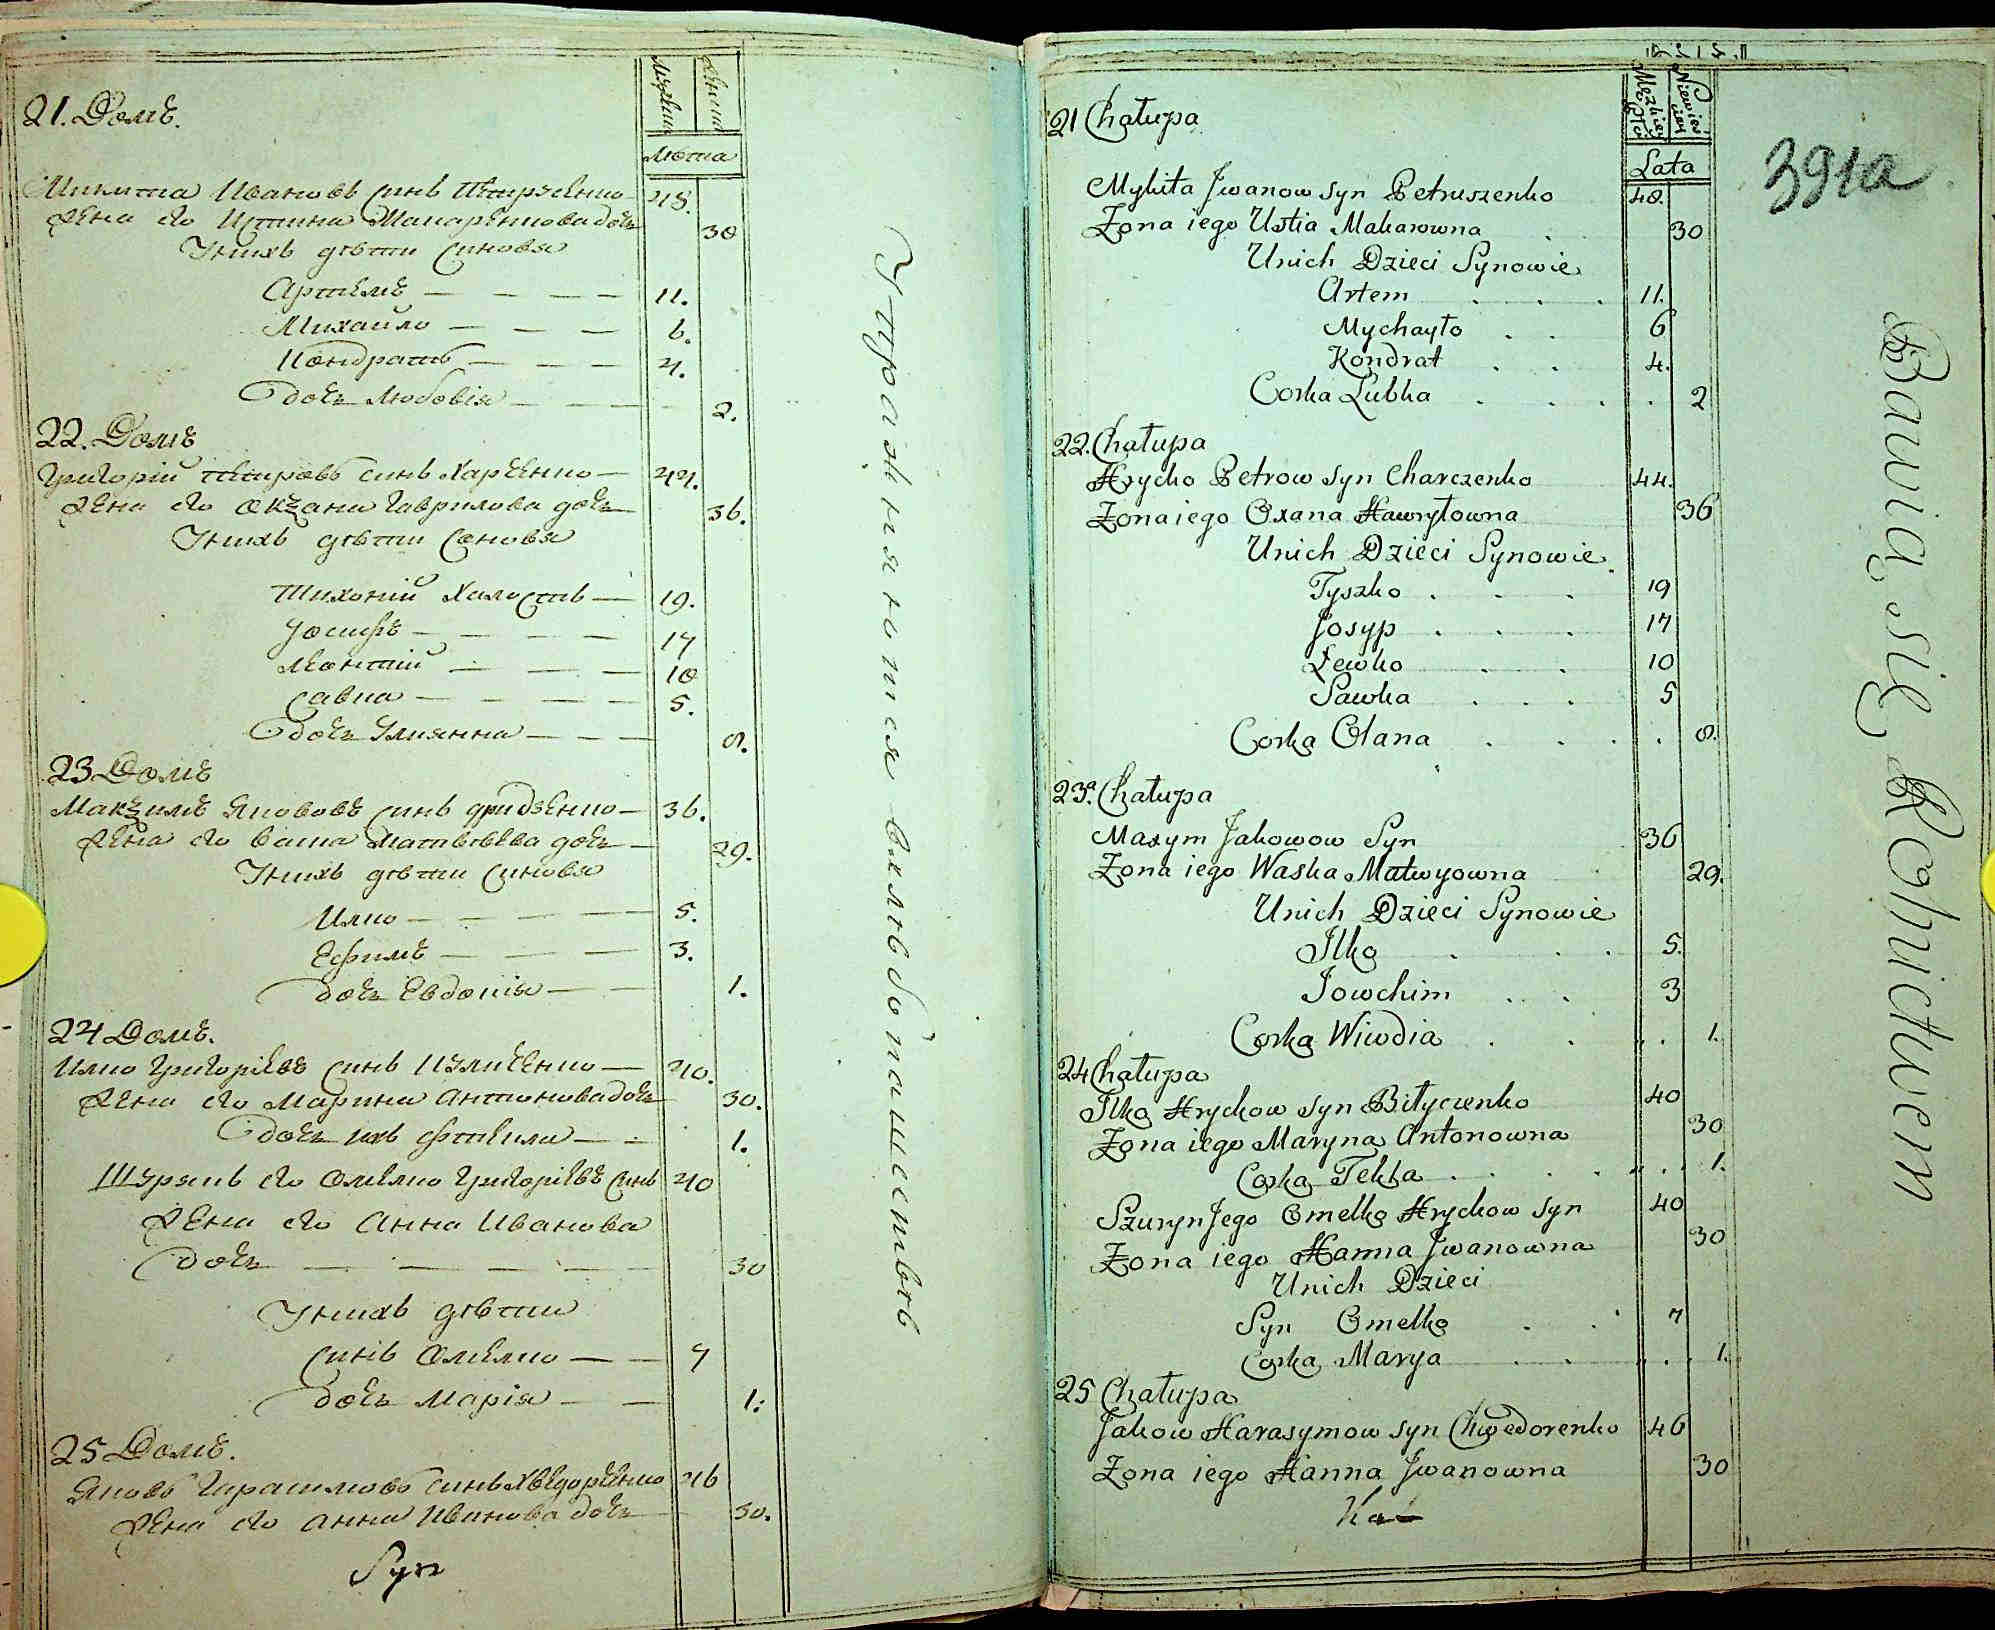 Мужеска
Женска
Лѣта
21. Домъ.
Микита Ивановъ синъ Петрусенко 48.
Жена его Устина Макаренкова дочь 30
У нихъ дѣти синовя
Артемъ 11.
Михайло 6.
Кондратъ 4.
дочь Любовія 2.
22. Домъ
Григорій Петровъ синъ Харченко 44.
Жена его Окзана Гаврилова дочь 36.
У нихъ дѣти синовя
Тихоній Холостъ 19.
Іосифъ 17
Леонтій 10
Савка 5.
дочь Улиянна 8.
23 Домъ
Макзимъ Якововъ синъ 36.
Жена его Васка Матвѣева дочь 29.
У нихъ дѣти синовя
Илко 5.
Ефимъ 3.
дочь Евдокія 1.
24 Домъ.
Илко Григоріевъ синъ 40.
Жена его Марина Антонова дочь 30.
дочь ихъ 1.
Шурянъ его Омелко Григоріевъ синъ 40
Жена его Анна Иванова
дочь 30
У нихъ дѣти
синъ Омелко 7
дочь Марія 1.
25 Домъ.
Яковъ Гарасимовъ синъ Хведоренко 46
Жена его Анна Иванова дочь 30.
Syn
Упражняются въ хлѣбопашествѣ
Męzkiey Płci
Niewieściey
Lata
391a
21 Chałupa
Mykita Jwanow syn Petruszenko 48.
Żona iego Ustia Makarowna 30
Unich Dzieci Synowie
Artem 11.
Mychayło 6
Kondrat 4.
Corka Lubka 2
22. Chałupa
Hrycko Petrow syn Charczenko 44.
Żona iego Oxana Hawryłowna 36
Unich Dzieci Synowie
Tyszko 19
Josyp 17
Lewko 10
Sawka 5
Corka Olana 8.
23a. Chałupa
Maxym Jakowow Syn 36
Żona iego Waska Matwyowna 29.
Unich Dzieci Synowie
Ilko 5.
Jowchim 3
Corka Wiwdia 1.
24 Chałupa
Ilko Hryckow syn Biłyczenko 40
Żona iego Maryna Antonowna 30
Corka Tekla 1.
Szuryn Jego Omelko Hryckow syn 40
Żona iego Hanna Jwanowna 30
Unich Dzieci
Syn Omelko 7
Corka Marya 1.
25 Chałupa
Jakow Harasymow syn Chwedorenko 46
Żona iego Hanna Jwanowna 30
Bawią się Rolnictwem